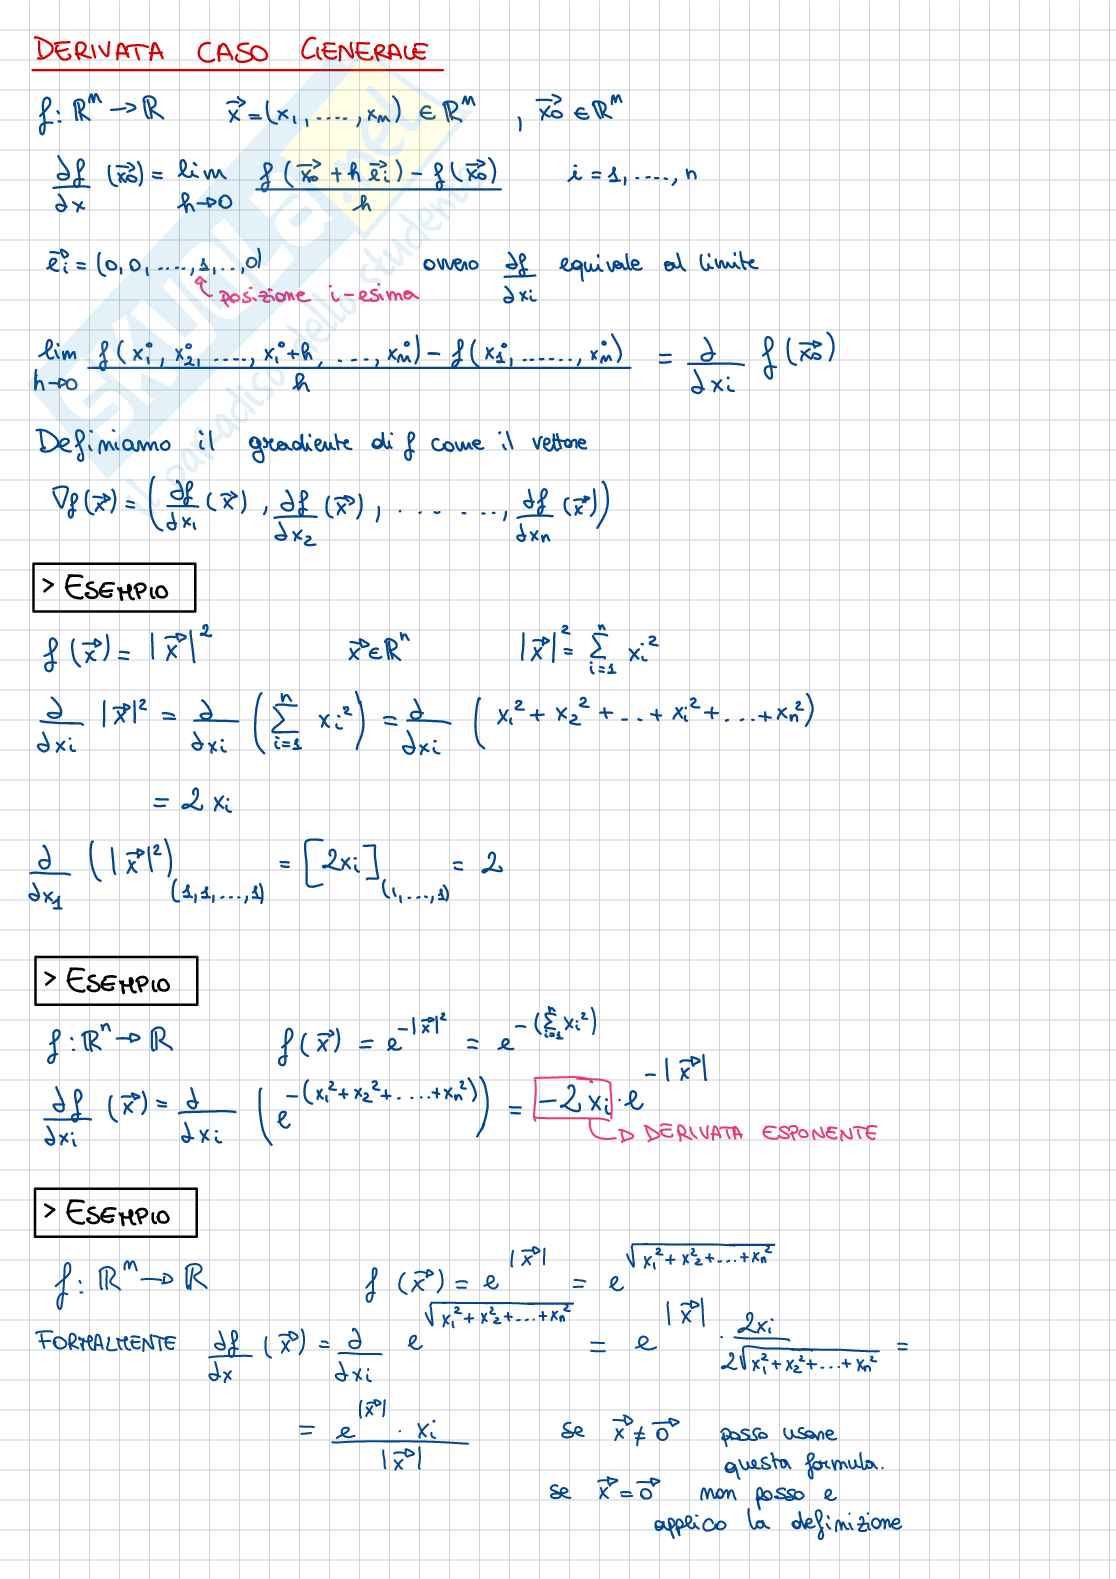 DERIVATA CASO GENERALE
f: ℝⁿ → ℝ    x⃗ = (x₁, ...., xₙ) ∈ ℝⁿ , x⃗₀ ∈ ℝⁿ
∂f/∂x (x⃗₀) = lim h→0 (f(x⃗₀ + h e⃗ᵢ) - f(x⃗₀))/h    i = 1, ...., n
e⃗ᵢ = (0, 0, ...., 1, .., 0)    ovvero ∂f/∂xᵢ equivale al limite
posizione i-esima
lim h→0 (f(xᵢ°, x₂°, ...., xᵢ°+h, ..., xₙ°) - f(x₁°, ......, xₙ°))/h = ∂/∂xᵢ f(x⃗₀)
Definiamo il gradiente di f come il vettore
∇f(x⃗) = (∂f/∂x₁ (x⃗), ∂f/∂x₂ (x⃗), ......., ∂f/∂xₙ (x⃗))
> ESEMPIO
f(x⃗) = |x⃗|²    x⃗ ∈ ℝⁿ    |x⃗|² = Σᵢ₌₁ⁿ xᵢ²
∂/∂xᵢ |x⃗|² = ∂/∂xᵢ (Σᵢ₌₁ⁿ xᵢ²) = ∂/∂xᵢ (x₁² + x₂² + ... + xᵢ² + ... + xₙ²)
= 2xᵢ
∂/∂x₁ (|x⃗|²)(1,1,...,1) = [2xᵢ](1,...,1) = 2
> ESEMPIO
f: ℝⁿ → ℝ    f(x⃗) = e^(-|x⃗|²) = e^(-(Σᵢ₌₁ⁿ xᵢ²))
∂f/∂xᵢ (x⃗) = ∂/∂xᵢ (e^(-(x₁²+x₂²+....+xₙ²))) = -2xᵢ · e^(-|x⃗|)
DERIVATA ESPONENTE
> ESEMPIO
f: ℝⁿ → ℝ    f(x⃗) = e^|x⃗| = e^√(x₁²+x₂²+...+xₙ²)
FORMALMENTE ∂f/∂x (x⃗) = ∂/∂xᵢ e^√(x₁²+x₂²+...+xₙ²) = e^|x⃗| · 2xᵢ/(2√(x₁²+x₂²+...+xₙ²)) =
= (e^|x⃗| · xᵢ)/|x⃗|    se x⃗ ≠ 0⃗ posso usare
questa formula.
se x⃗ = 0⃗ non posso e
applico la definizione
SKUOLA.net
il paradiso dello studente